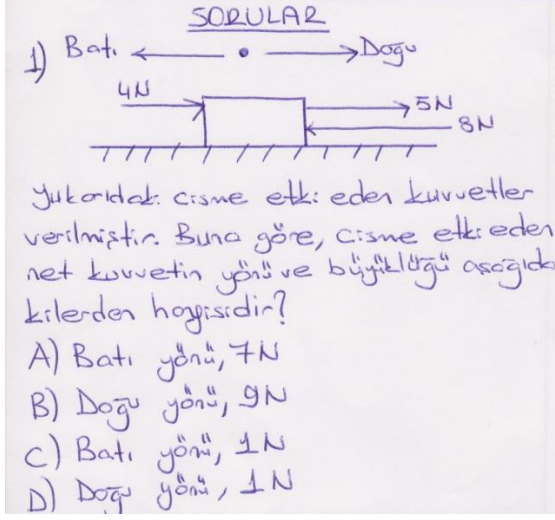 SORULAR
1) Batı Doğu
4N 5N
8N
Yukarıdaki cisme etki eden kuvvetler
verilmiştir. Buna göre, cisme etki eden
net kuvvetin yönü ve büyüklüğü aşağıda
kilerden hangisidir?
A) Batı yönü, 7N
B) Doğu yönü, 9N
C) Batı yönü, 1N
D) Doğu yönü, 1N